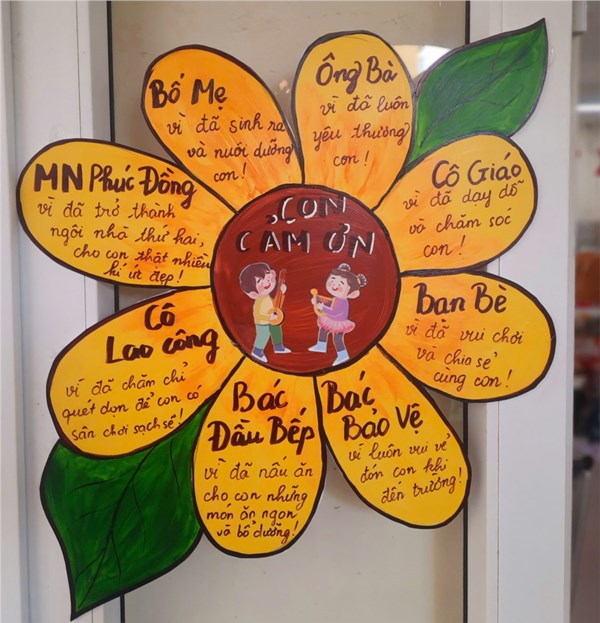 CON
CẢM ƠN
Ông Bà
vì đã luôn
yêu thương
con!
Cô Giáo
vì đã dạy dỗ
và chăm sóc
con!
Bạn Bè
vì đã vui chơi
và chia sẻ
cùng con!
Bác
Bảo Vệ
vì luôn vui vẻ
đón con khi
đến trường!
Bác
Đầu Bếp
vì đã nấu ăn
cho con những
món ăn ngon
và bổ dưỡng!
Cô
Lao công
vì đã chăm chỉ
quét dọn để con có
sân chơi sạch sẽ!
MN Phúc Đồng
vì đã trở thành
ngôi nhà thứ hai,
cho con thật nhiều
kí ức đẹp!
Bố Mẹ
vì đã sinh ra
và nuôi dưỡng
con!